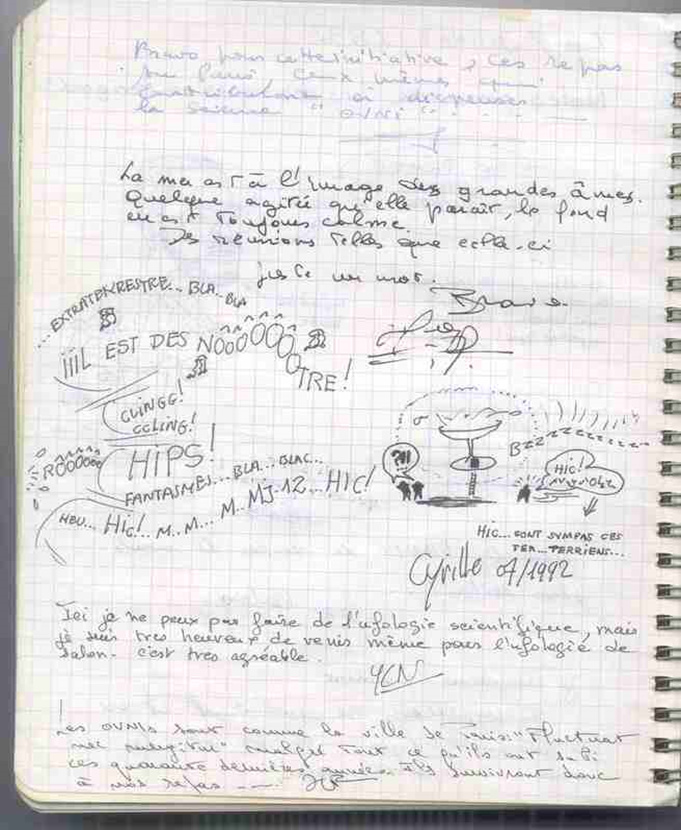 Bravo pour cette initiative, ces repas
ceux mêmes qui
la science "OVNI"
La mer est à l'image des grandes âmes.
Quelque agitée qu'elle paraît, le fond
en est toujours calme.
Des réunions telles que celle-ci
juste un mot.
Bravo.
...EXTRATERRESTRE... BLA.. BLA
iiiL EST DES NÔoÔÔÔÔÔ
OTRE!
CLiNGG!
CCLING!
RÔOOOOO
HIPS!
FANTASMES... BLA... BLAC...
HEU... HiC! M.. M... M.. MJ-12... HIC!
?!!
BZZ
HiC!
HIC... SONT SYMPAS CES
TER... TERRIENS...
Cyrille 04/1992
Ici je ne peux pas faire de l'ufologie scientifique, mais
je suis tres heureux de venir même pour l'ufologie de
salon. c'est tres agréable.
YCN
!
Les OVNIs sont comme la ville de Paris: "Fluctuat
nec mergitur" malgré tout ce qu'ils ont subi
ces quarante dernières années. Ils survivront donc
à nos repas